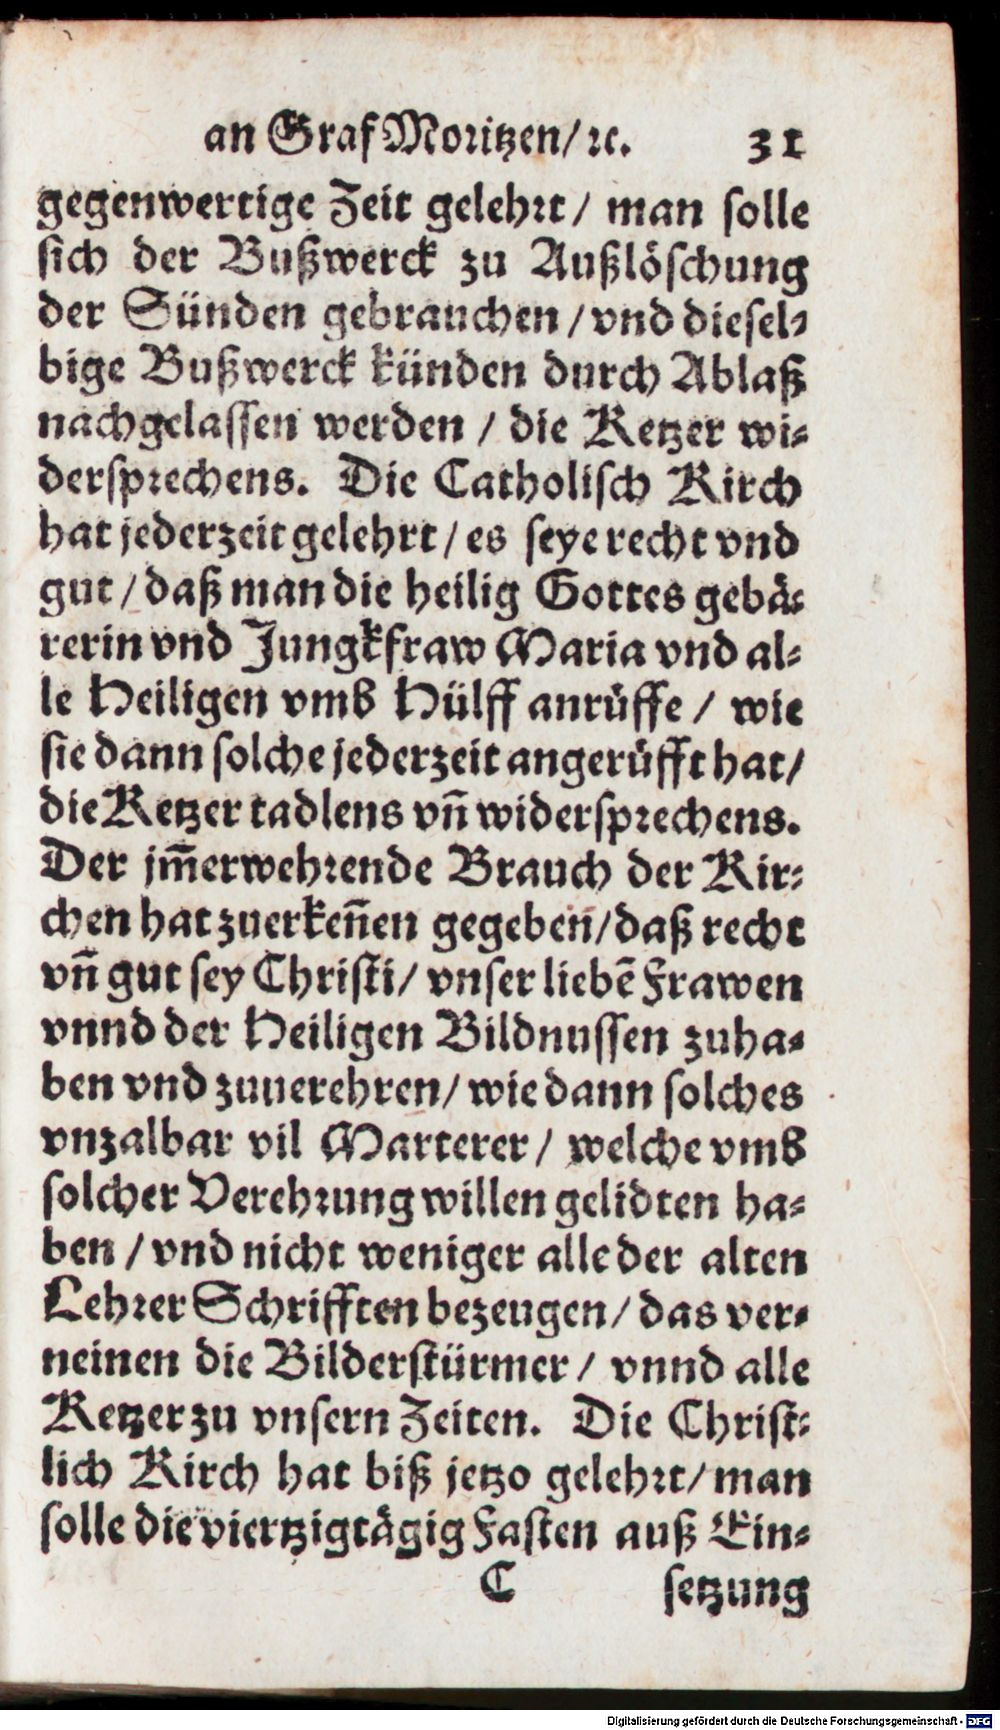 an Graf Moritzen/ ꝛc. 31
gegenwertige Zeit gelehrt/ man solle
sich der Bußwerck zu Außlöschung
der Sünden gebrauchen/ vnd diesel-
bige Bußwerck künden durch Ablaß
nachgelassen werden / die Ketzer wi-
dersprechens. Die Catholisch Kirch
hat jederzeit gelehrt/ es seye recht vnd
gut/ daß man die heilig Gottes gebä-
rerin vnd Jungkfraw Maria vnd al-
le Heiligen vmb Hülff anrüffe / wie
sie dann solche jederzeit angerüfft hat/
die Ketzer tadlens vñ widersprechens.
Der jm̃erwehrende Brauch der Kir-
chen hat zuerkeñen gegeben/ daß recht
vñ gut sey Christi/ vnser liebẽ Frawen
vnnd der Heiligen Bildnussen zuha-
ben vnd zuuerehren/ wie dann solches
vnzalbar vil Marterer/ welche vmb
solcher Verehrung willen gelidten ha-
ben / vnd nicht weniger alle der alten
Lehrer Schrifften bezeugen/ das ver-
neinen die Bilderstürmer/ vnnd alle
Ketzer zu vnsern Zeiten. Die Christ-
lich Kirch hat biß jetzo gelehrt/ man
solle die viertzigtägig Fasten auß Ein-
C setzung
Digitalisierung gefördert durch die Deutsche Forschungsgemeinschaft - DFG